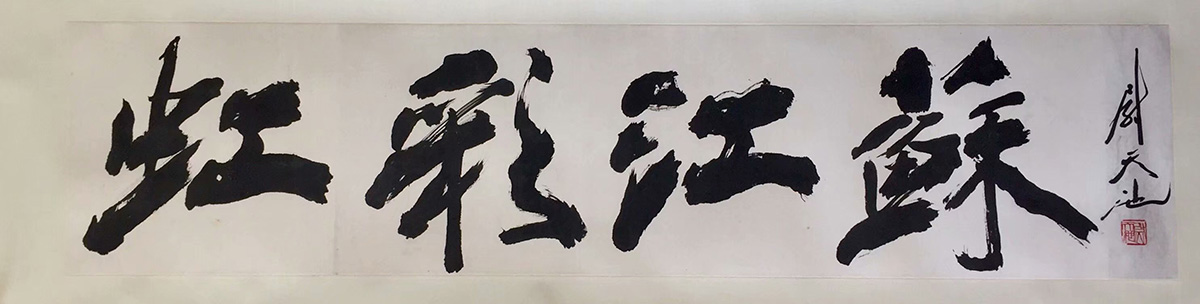 虹彩江蘇
尉天池